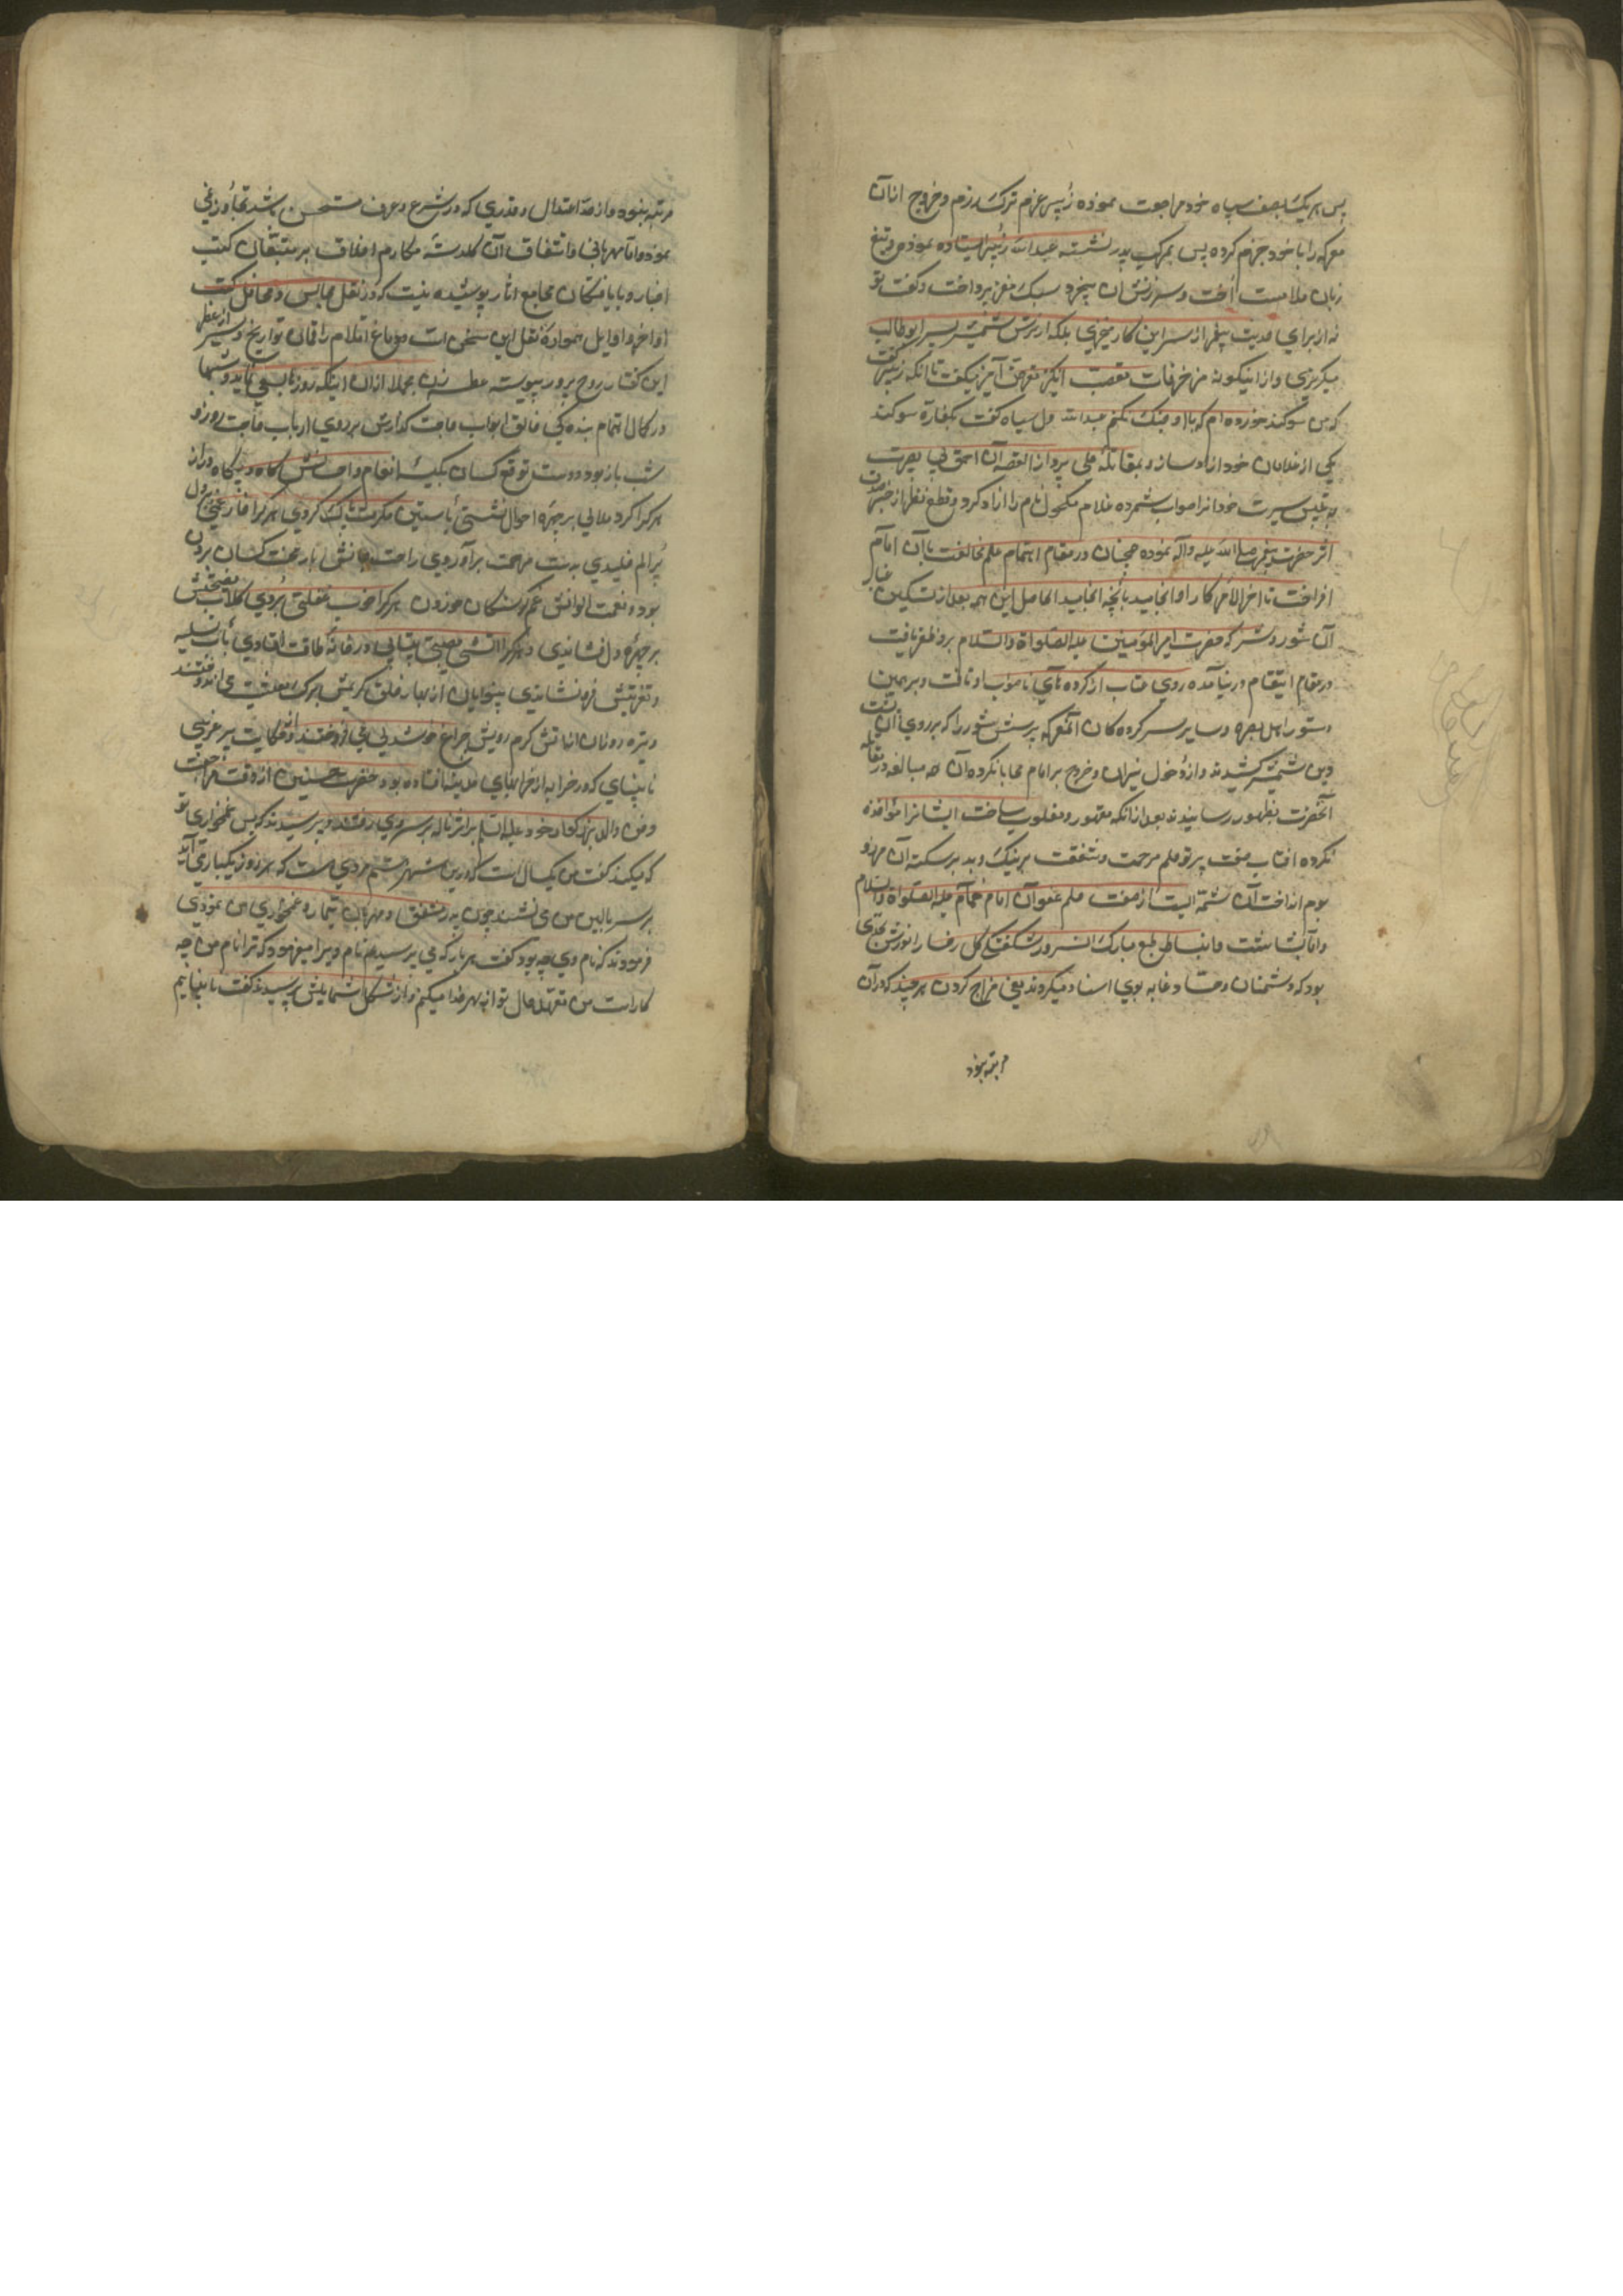 پس هر یک بصف سپاه خود مراجعت نموده زبیر عزم ترک رزم و خروج ازان
معرکه را با خود جزم کرده پس بمرکب پدر نشسته عبدالله زبیر ایستاده نموده و تیغ
زبان ملامت آخت و سرزنش ان بیخرد سبک مغز پرداخت و گفت تو
نه از برای حدیث پیغمبر از سر این کار میخیزی بلکه از ترس شمشیر پسر ابوطالب
میگریزی و از اینگونه مزخرفات تعصب انگیز تعرض آمیز میگفت تا انکه زبیر گفت
که من سوگند خورده ام که با او جنگ نکنم عبدالله دل سیاه گفت بکفاره سوگند
یکی از غلامان خود ازاد ساز و بمقاتله علی پرداز القصه آن احمق بی بصیرت
سیرت خود انرا صواب شمرده غلام مکحول نام را ازاد کرد و قطع نظر از خبر صدق
اثر حضرت پیغمبر صلی الله علیه واله نموده همچنان در مقام اهتمام علم مخالفت باآن امام
افراخت تا اخرالامر کار او انجامید بانچه انجامید الحاصل این همه بعد از تسکین غبار
آن شور و شر که حضرت امیرالمومنین علیه الصلواة والسلام برو ظفر یافت
در مقام انتقام در نیامده روی عتاب از کرده های ناصواب او تافت و برهمین
دستور اهل بصره و سایر سرکرده کان المعرکه پرشر و شور را که بر روی آن پشت
دین شمشیر کشیدند و از دخول نیران و خروج بر امام محابا نکرده آن همه مبالغه در مقاتله
آنحضرت بظهور رسانیدند بعد ازانکه مقهور و مغلوب ساخت ایشانرا مواخذه
نکرده افتاب صفت پرتو حلم مرحمت و شفقت بر نیک و بد بر سکنه آن مرز و
بوم انداخت آن شمه ایست از صفت حلم عفو آن امام همام علیه الصلواة والسلام
واما بشاشت و انبساط طبع مبارک انسرور و شکفتگی گل رخسار انور بحدی
بود که دشمنان و حساد دغابه بوی اسناد میکردند یعنی مزاح کردن هر چند که دران
مرتبه نبود
مرتبه نبود و از حد اعتدال و قدری که در شرع و عرف مستحسن باشد تجاوز نمی
نمود و اما مهربانی و اشفاق آن گلدسته مکارم اخلاق بر متتبعان کتب
اخبار و بار یافتگان مجامع اثار پوشیده نیست که در نقل مجالس و محافل کتب
اواخر و اوایل همواره نقل این سخن است و دماغ اقلام راقمان تواریخ و سیر از عطر
این گفتار روح پرور پیوسته عطسه زن مجملا ازان اینکه روزها بسعی تمام و شبها
در کمال اهتمام بنده کی خالق ابواب حاجت گذارش بر روی ارباب حاجت روز و
شب باز بود و دست توقع کسان بکیسه انعام و احسانش گاه و بیگاه دراز
هر کرا گرد ملالی بر چهره احوال نشستی بآستین مکرمت پاک کردی هر کرا خار غمی در دل
پر الم خلیدی بدست مرحمت برآوردی راحت جانش بار محنت کشان بردن
بود و نعمت الوانش غم گرسنگان خوردن هر کرا خواب غفلتی بردی گلاب نصیحتش
بر چهره دل فشاندی و هر کرا اتشی مصیبتی بیتابی در خانه طاقت افتادی بآب تسلیه
و تعزیتش فرو نشاندی بینوایان از بهار خلق کریمش برگ معیشت می اندوختند
و تیره روزان از اتش کرم رویش چراغ خوشدلی می افروختند و حکایت پیر غریبی
نابینای که در خرابه از خرابهای مدینه افتاده بود و حضرت حسنین از وقت مراجعت
دفن والد بزرگوار خود علیه السلم بر اثر ناله بر سروی رفتند و پرسیدند که پس غمخواری تو
که میکند گفت من یکسال است که درین شهرستم مردی هست که هر روز یکباری آید
بر سر بالین من می نشیند چون پدر مشفق و مهربان تیمار و غمخواری من نمودی
فرمودند که نام وی چه بود گفت هر بار که می پرسیدم نام ویرا میفرمود که ترا نام من چه
کار است من تعهد حال تو از بهر خدا میکنم و از شکل شمایلش پرسیدند گفت نابینایم